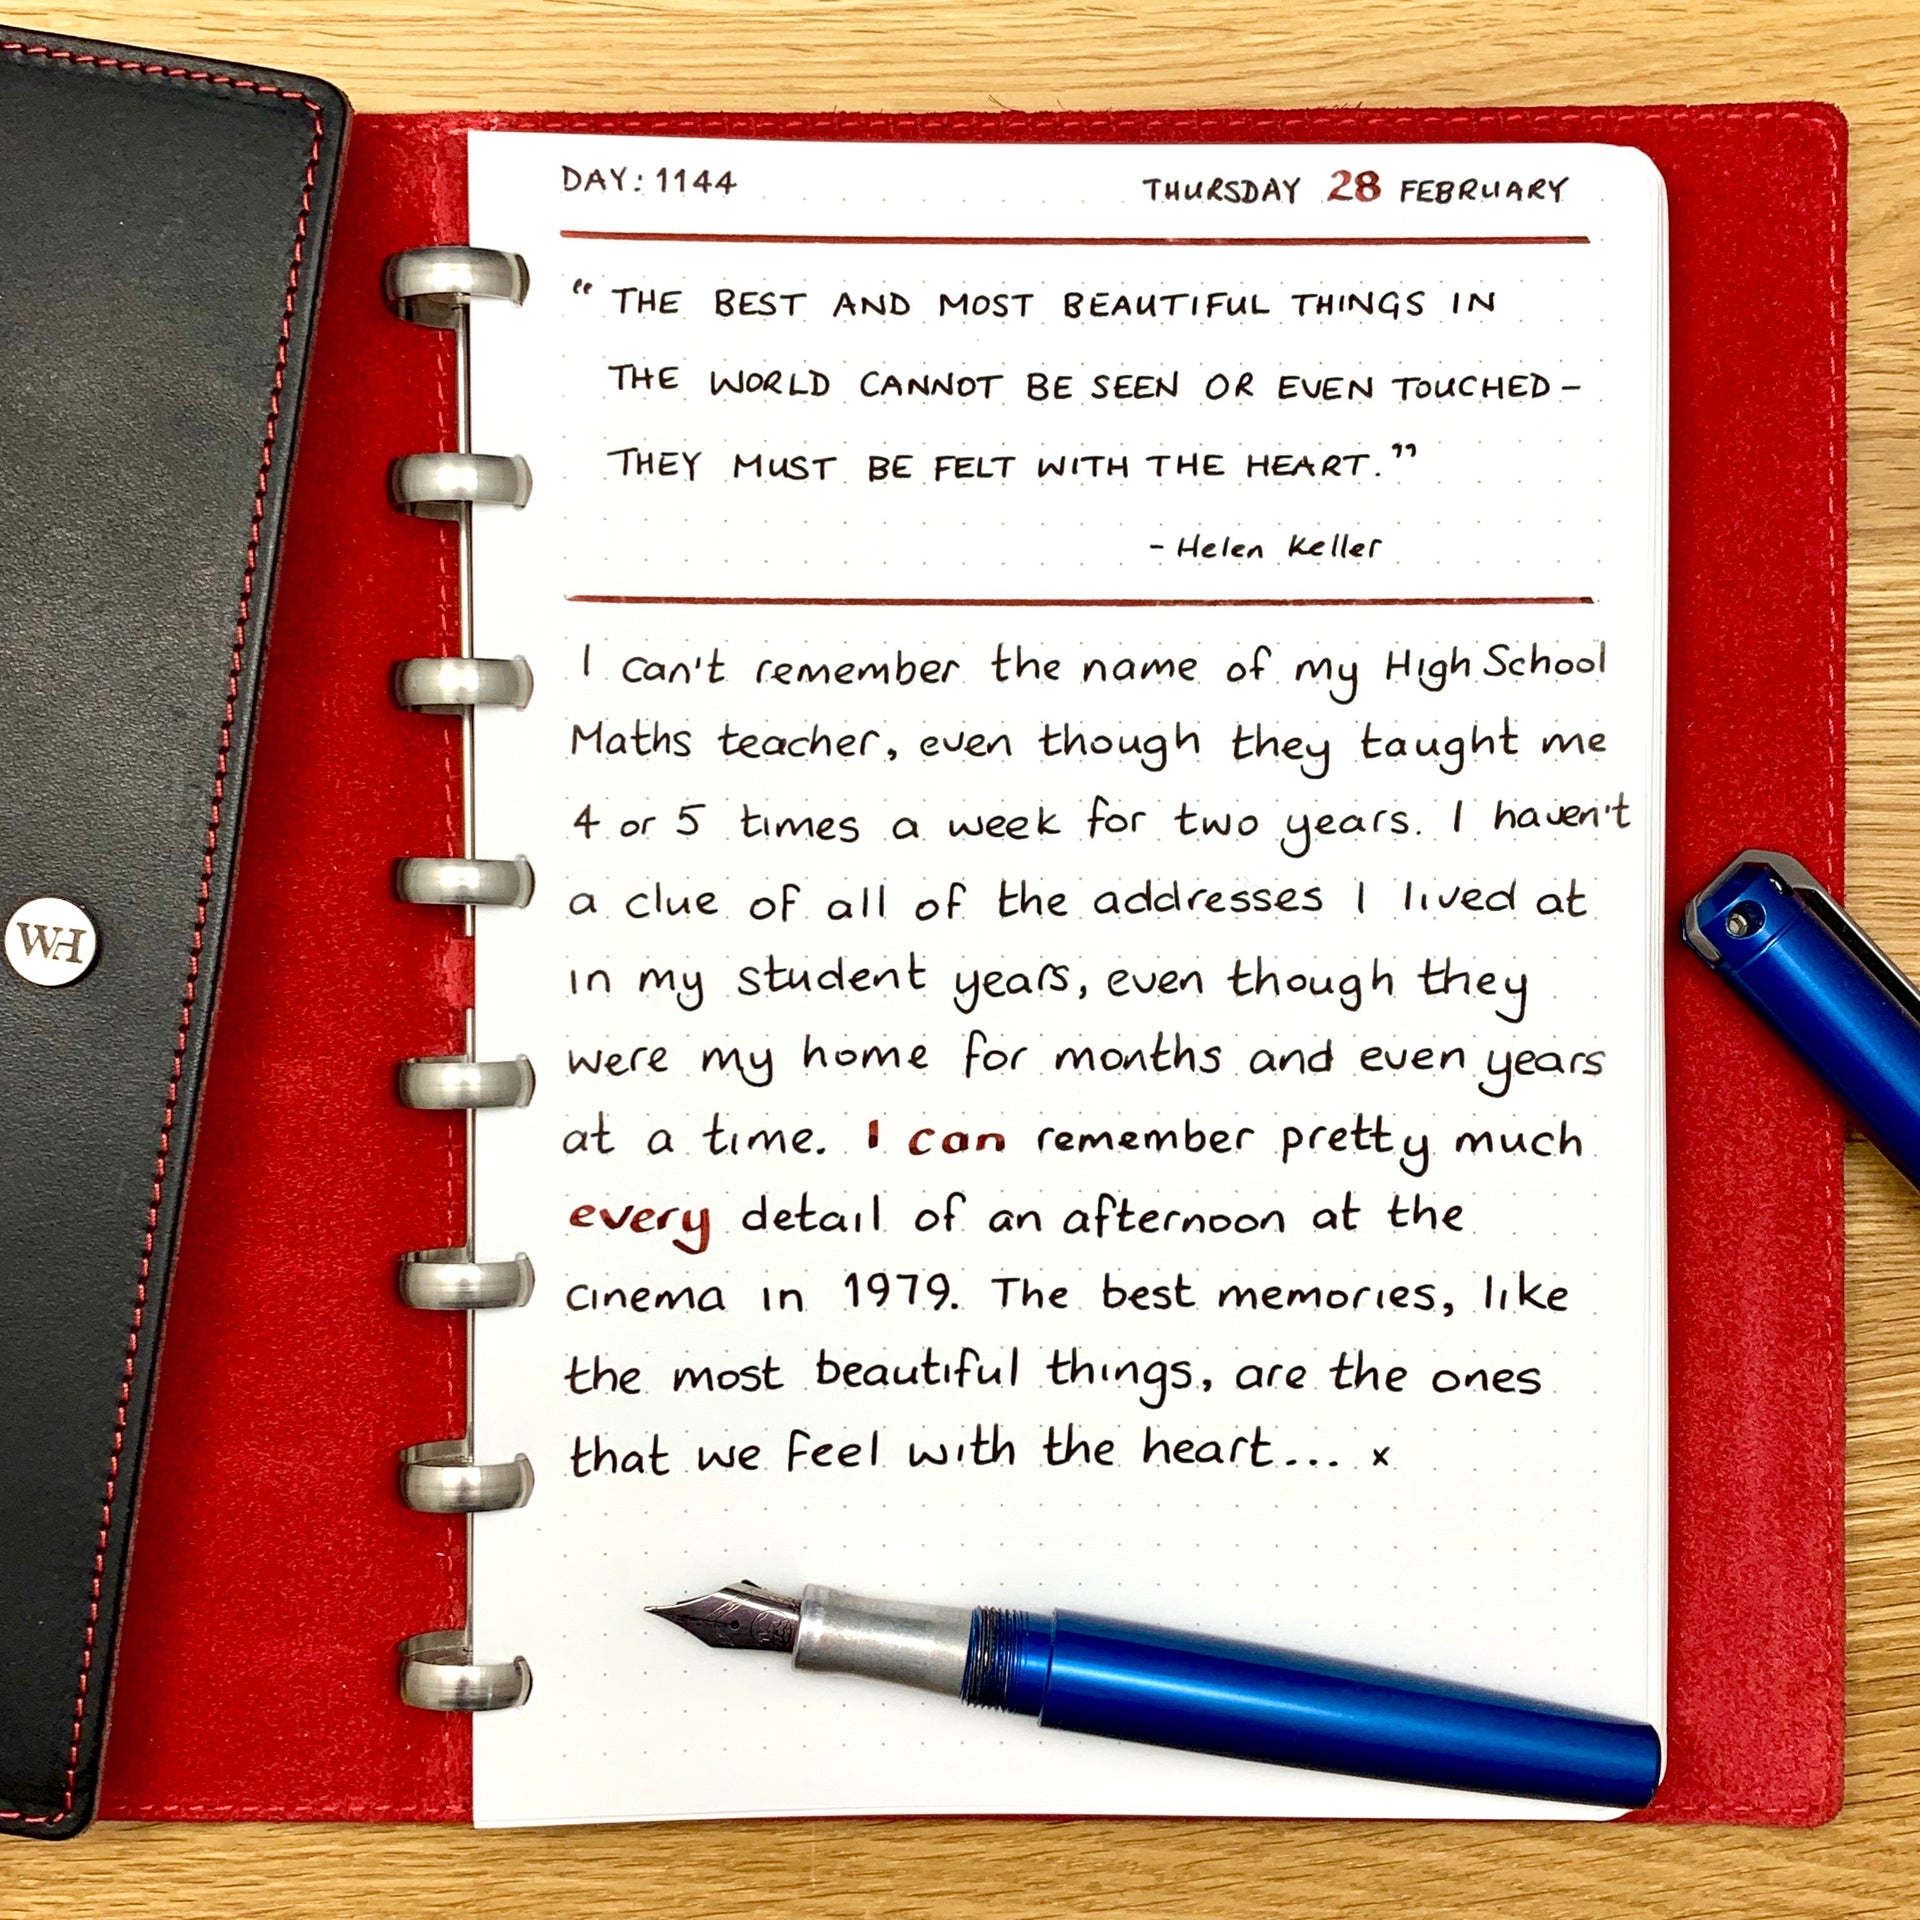 DAY: 1144
THURSDAY 28 FEBRUARY
“THE BEST AND MOST BEAUTIFUL THINGS IN
THE WORLD CANNOT BE SEEN OR EVEN TOUCHED –
THEY MUST BE FELT WITH THE HEART.”
- Helen Keller
I can't remember the name of my High School
Maths teacher, even though they taught me
4 or 5 times a week for two years. I haven't
a clue of all of the addresses I lived at
in my student years, even though they
were my home for months and even years
at a time. I can remember pretty much
every detail of an afternoon at the
cinema in 1979. The best memories, like
the most beautiful things, are the ones
that we feel with the heart... x
WH